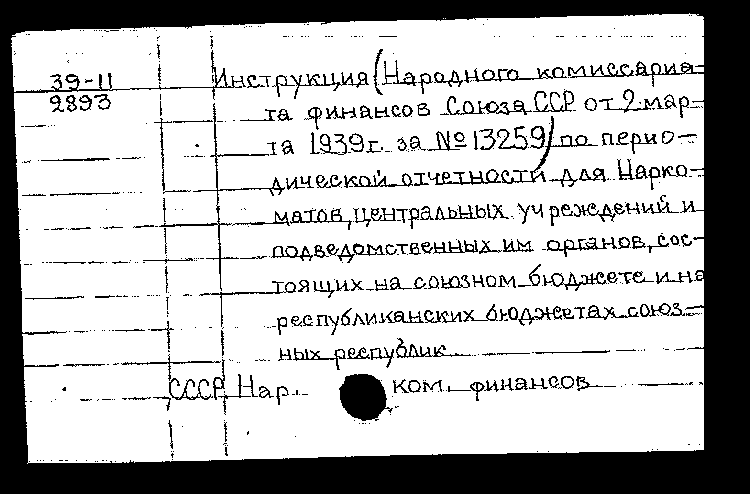 39-11
2893
Инструкция (Народного комиссариа-
та финансов Союза ССР от 2 мар-
та 1939 г. за № 13259) по перио-
дической отчетности для Нарко-
матов, центральных учреждений и
подведомственных им органов, сос-
тоящих на союзном бюджете и на
республиканских бюджетах союз-
ных республик.
СССР Нар. ком. финансов